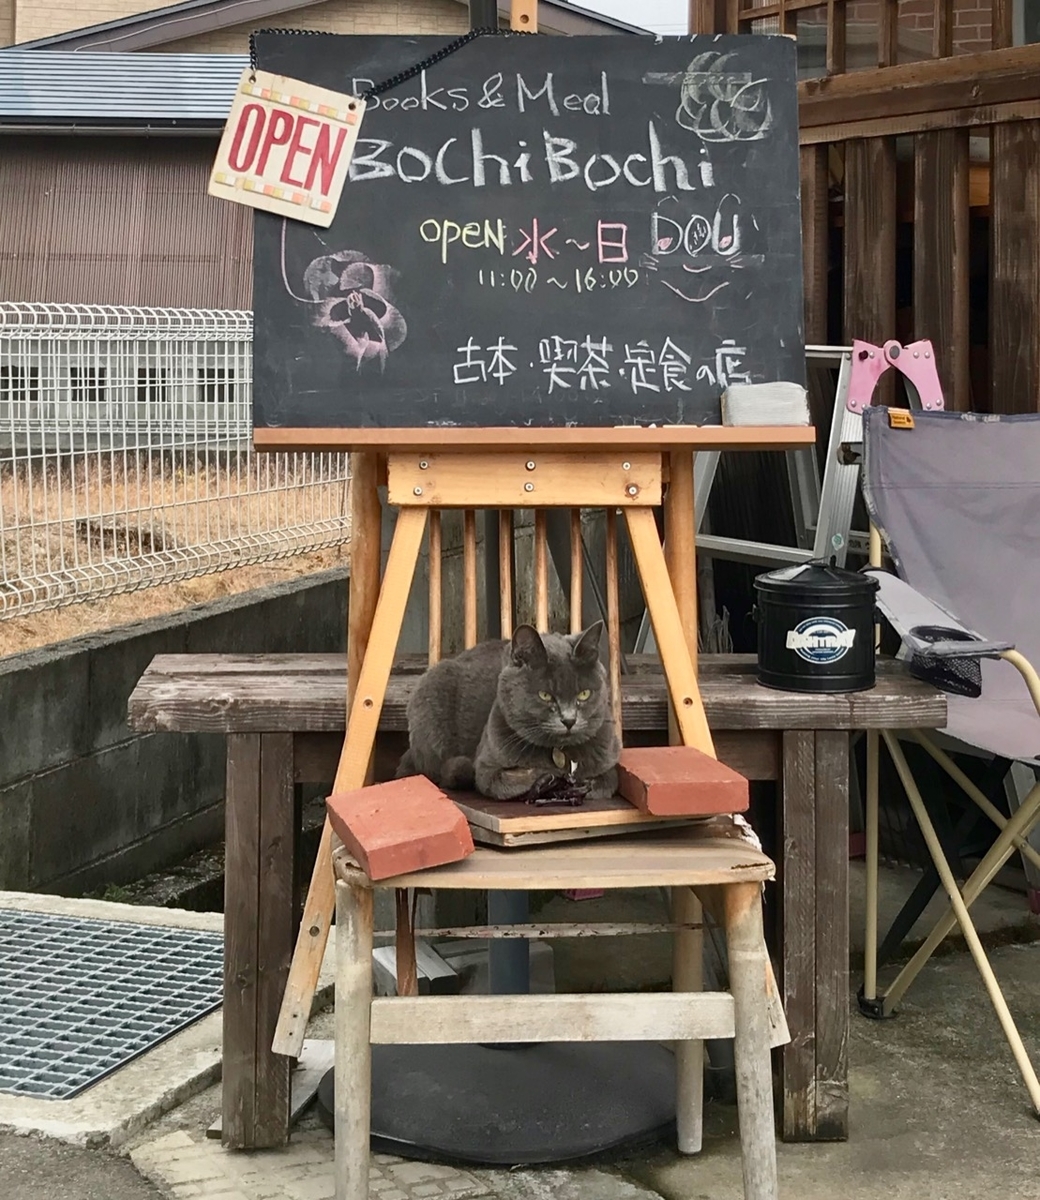 OPEN
Books & Meal
BochiBochi
open 水～日
11:00～16:00
古本・喫茶・定食の店